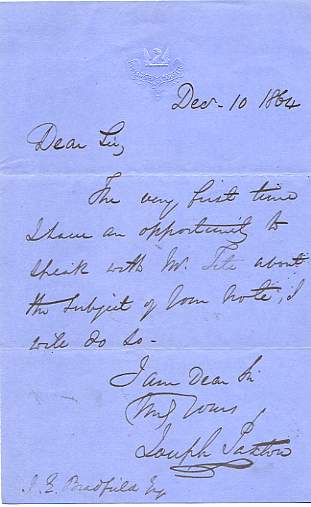 Decr. 10 1864
Dear Sir,
The very first time
I have an opportunity to
speak with Mr. Tite about
the subject of your note, I
will do so -
I am Dear Sir
Truly Yours,
Joseph Paxton
J. E. Bradfield Esq